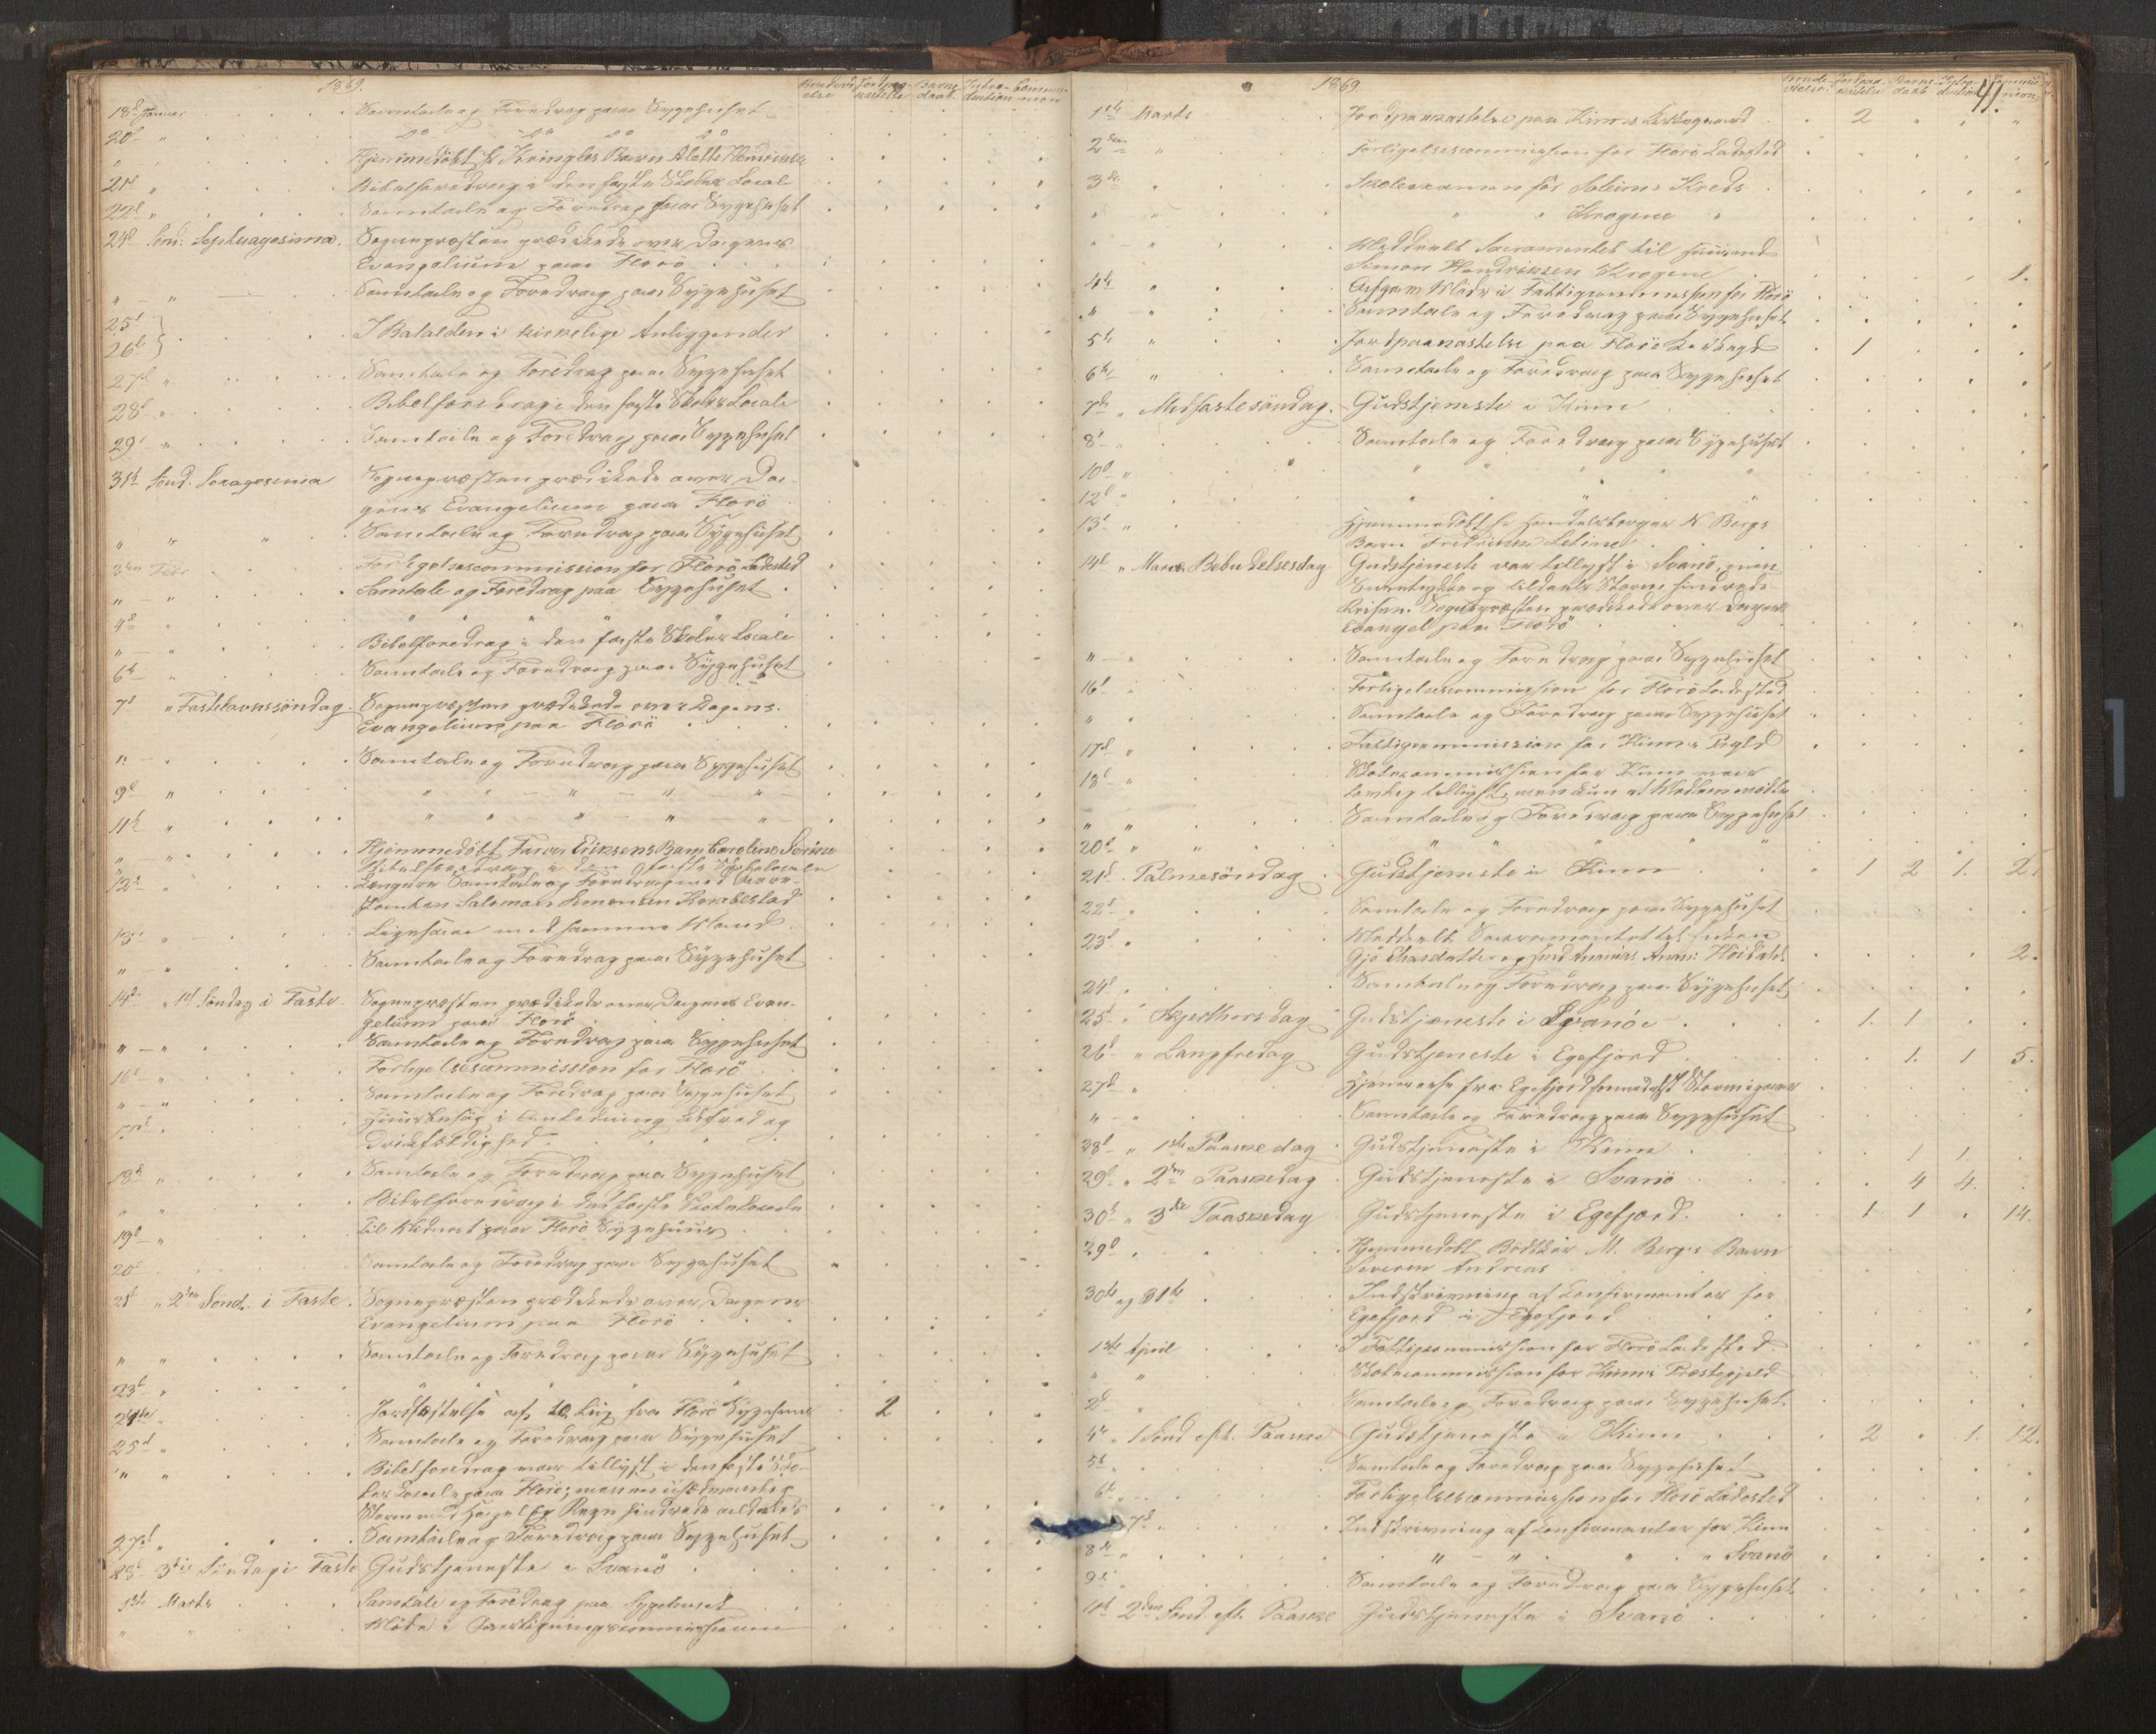 1869.
Brudevielse Jordpaakastelse Barnedaab Introduction Communion
18d Januar Samtale og Foredrag paa Sygehuset
20d " do do do do
" Hjemmedöbt Kringles Barn
21d " Bibelforedrag i den faste Skoles Local
22d " Samtale og Foredrag paa Sygehuset
24d Sönd. Septuagesima. Sognepræsten prædikede over Dagens
Evangelium paa Florö
" " Samtale og Foredrag paa Sygehuset
25d
26d } I Batalden i kirkelige Anliggender
27d " Samtale og Foredrag paa Sygehuset
28d " Bibelforedrag i den faste Skoles Locale
29d " Samtale og Foredrag paa Sygehuset
31te Sönd. Sexagesima Sognepræsten prædikede over Da-
gens Evangelium paa Florö
" " " Samtale og Foredrag paa Sygehuset
Febr Forligelsescommission for Florö Ladested
" " Samtale og Foredrag paa Sygehuset
4d " " " "
" " Bibelforedrag i den faste Skoles Locale
6te " Samtale og Foredrag paa Sygehuset
7d " Fastelavnssöndag. Sognepræsten prædikede over Dagens
Evangelium paa Florö
" Samtale og Foredrag paa Sygehuset
9d " " " " " "
11te " " " " " "
" " Hjemmedöbt Farver Eriksens Barn Caroline Serine
Bibelforedrag i den faste Skolelocale
12te " Længere Samtale og Foredrag med
Salomon Simonsen
13d " Ligesaa med samme Mand
" " Samtale og Foredrag paa Sygehuset
14d " 1st Söndag i Faste. Sognepræsten prædikede over Dagens Evan-
gelium paa Florö
" " Samtale og Foredrag paa Sygehuset
16d " Forligelsescommission for Florö
" " Samtale og Foredrag paa Sygehuset
Huusbesög i Anledning Ufred og
18d " Samtale og Foredrag paa Sygehuset
" " Bibelforedrag i den faste Skoles Locale
19d " paa Florö Sygehuus
20d Samtale og Foredrag paa Sygehuset
21d " 2den Sönd. i Faste. Sognepræsten prædikede over Dagens
Evangelium paa Florö
" " Samtale og Foredrag paa Sygehuset
23d " " " " "
24de " Jordfæstelse af 2 Liig fra Florö Sygehuus 2
25d " Samtale og Foredrag paa Sygehuset
" " Bibelforedrag var tillyst i den faste Sko-
les Locale paa Florö; men en
Storm med Hagel og Regn hindrede
27d " Samtale og Foredrag paa Sygehuset
28d 3die Söndag i Faste Gudstjeneste i Svanö
1ste Marts Samtale og Foredrag paa Sygehuset
" " Möde i
1869.
41.
1ste Marts Jordpaakastelse paa Kinns Kirkegaard 2 " " "
2den " Forligelsescommission for Florö Ladested
3die " Skoleexamen for Solheims Kreds
" " " " Krogene "
" " Meddeelt Sacramentet til
Simon Hendriksen Krogene 1.
4de " Möde i Fattigcommissionen for Florö
" " Samtale og Foredrag paa Sygehuset
5te " Jordpaakastelse paa Florö 1
6te " Samtale og Foredrag paa Sygehuset
7de " Midfastesöndag. Gudstjeneste i Kinn
8d " Samtale og Foredrag paa Sygehuset
10d " " " " "
12d " " " "
13d " Hjemmedöbt Handelsborger N. Bergs
Barn
14d " Mariæ Bebudelsesdag Gudstjeneste var tillyst i Svanö, men
Storm hindrede
Reisen. Sognepræsten prædikede over Dagens
Evangel paa Florö
" " Samtale og Foredrag paa Sygehuset
16d " Forligelsescommission for Florö Ladested
" " Samtale og Foredrag paa Sygehuset
17d " Fattigcommission for Kinns Prgld
18d " Skolecommission for Kinn var
" " Samtale og Foredrag paa Sygehuset
20d " " " " "
21d " Palmesöndag Gudstjeneste i Kinn 1 2 1. 2.
22d " Samtale og Foredrag paa Sygehuset
23d " Meddeelt Sacramentet til
2.
24d " Samtale og Foredrag paa Sygehuset
25d " Skjærthorsdag Gudstjeneste i Svanöe 1. 1
26d " Langfredag Gudstjeneste i Egefjord 1. 1 5.
27d " Hjemreise fra Egefjord
" " Samtale og Foredrag paa Sygehuset
28d " 1ste Paaskedag Gudstjeneste i Kinn 1 1.
29d " 2den Paaskedag Gudstjeneste i Svanö 4 4.
30te " 3die Paaskedag Gudstjeneste i Egefjord. 1 1 14.
29d " Hjemmedöbt Bödtker M. Bergs Barn
Severin Andreas
30te og 31te Indskrivning af Confirmanter for
Egefjord i Egefjord
1ste April I Fattigcommission for Florö Ladested
" " Skolecommission for Kinns Præstegjeld
2d " Samtale og Foredrag paa Sygehuset
4de " 1 Sönd eft. Paaske Gudstjeneste i Kinn 2 1. 12.
5te " Samtale og Foredrag paa Sygehuset
6te " Forligelsescommission for Florö Ladested
7d " Indskrivning af Confirmanter for Kinn
8de " " " " " Svanö
9d " Samtale og Foredrag paa Sygehuset
11te 2den Sönd. eft. Paaske Gudstjeneste i Svanö